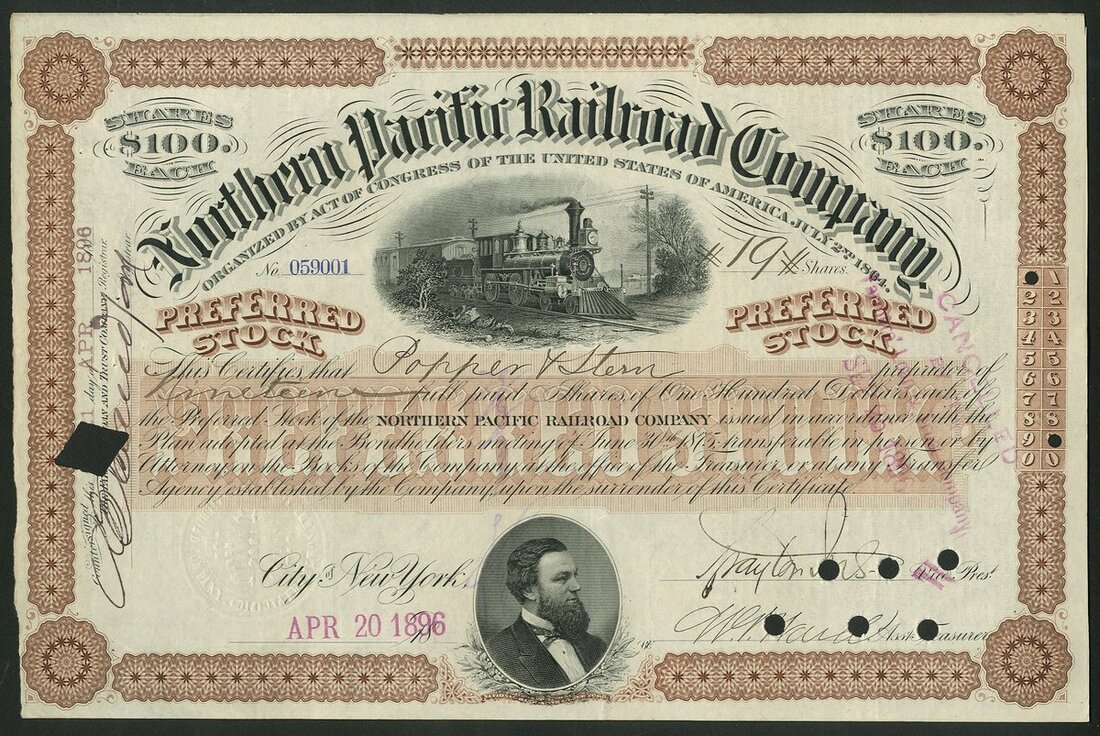 SHARES
$100.
EACH
Northern Pacific Railroad Company,
SHARES
$100.
EACH
ORGANIZED BY ACT OF CONGRESS OF THE UNITED STATES OF AMERICA, JULY 2ND 1864.
No. 059001
19 Shares.
PREFERRED
STOCK
PREFERRED
STOCK
This Certifies that Popper & Stern proprietor of
Nineteen full paid Shares of One Hundred Dollars each, of
the Preferred Stock of the NORTHERN PACIFIC RAILROAD COMPANY issued in accordance with the
Plan adopted at the Bondholders meeting of June 30th 1875, transferable in person or by
Attorney, on the Books of the Company, at the office of the Treasurer, or at any Transfer
Agency established by the Company, upon the surrender of this Certificate.
PREFERRED STOCK
City of New York,
APR 20 1896
18
Vice Prest.
Asst. Treasurer
Countersigned this day of APR 1896
AND TRUST COMPANY Registrar
CANCELLED
Company
1 1
2 2
3 3
4 4
5 5
6 6
7 7
8 8
9
0 0